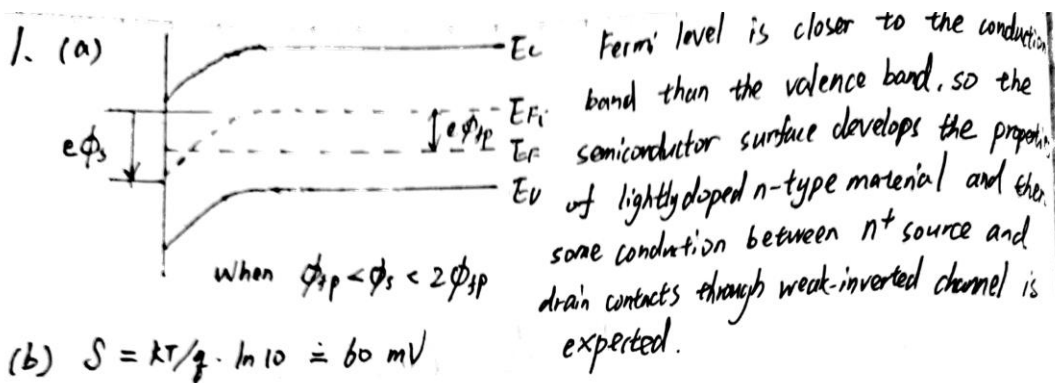 1. (a)
Ec
EFi
eϕfp
EF
Ev
eϕs
when ϕfp < ϕs < 2ϕfp
Fermi level is closer to the conduction
band than the valence band, so the
semiconductor surface develops the
of lightly doped n-type material and
some conduction between n⁺ source and
drain contacts through weak-inverted channel is
expected.
(b) S = kT/q · ln 10 ≐ 60 mV